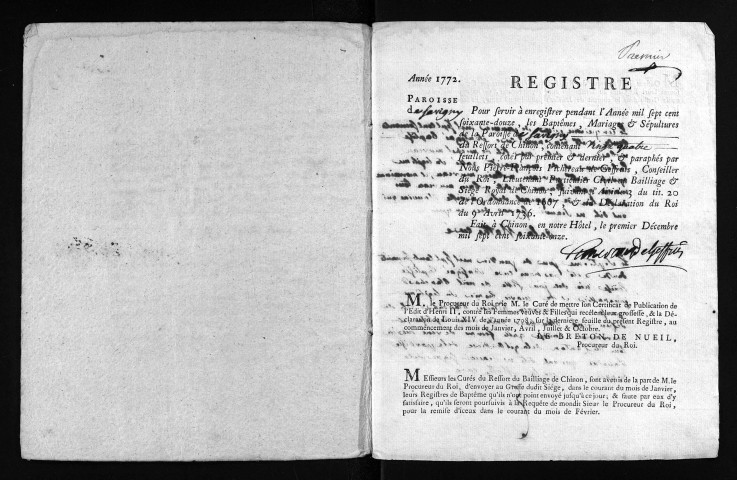 Premier
Année 1772.
REGISTRE
PAROISSE
de Savigny
Pour servir à enregistrer pendant l'Année mil sept cent
soixante-douze, les Baptêmes, Mariages & Sépultures
de la Paroisse de Savigny
du Ressort de Chinon, contenant vingt quatre
feuillets, cotés par premier & dernier, & paraphés par
Nous Pierre-François Conseiller
du Roi, Lieutenant Particulier Civil au Bailliage &
Siége Royal de Chinon, suivant du tit. 20
de l'Ordonnance de 1667, & la Déclaration du Roi
du 9 Avril 1736.
Fait à Chinon, en notre Hôtel, le premier Décembre
mil sept cent soixante-onze.
M. le Procureur du Roi prie M. le Curé de mettre son Certificat de Publication de
l'Edit d'Henri II, contre les Femmes veuves & Filles qui recèlent leur grossesse, & la Dé-
claration de Louis XIV de l'année 1708, sur la derniere feuille du présent Registre, au
commencement des mois de Janvier, Avril, Juillet & Octobre.
LE BRETON DE NUEIL,
Procureur du Roi.
MEssieurs les Curés du Ressort du Bailliage de Chinon, sont avertis de la part de M. le
Procureur du Roi, d'envoyer au Greffe dudit Siége, dans le courant du mois de Janvier,
leurs Registres de Baptême qu'ils n'ont point envoyé jusqu'à ce jour; & faute par eux d'y
satisfaire, qu'ils seront poursuivis à la Requête de mondit Sieur le Procureur du Roi,
pour la remise d'iceux dans le courant du mois de Février.